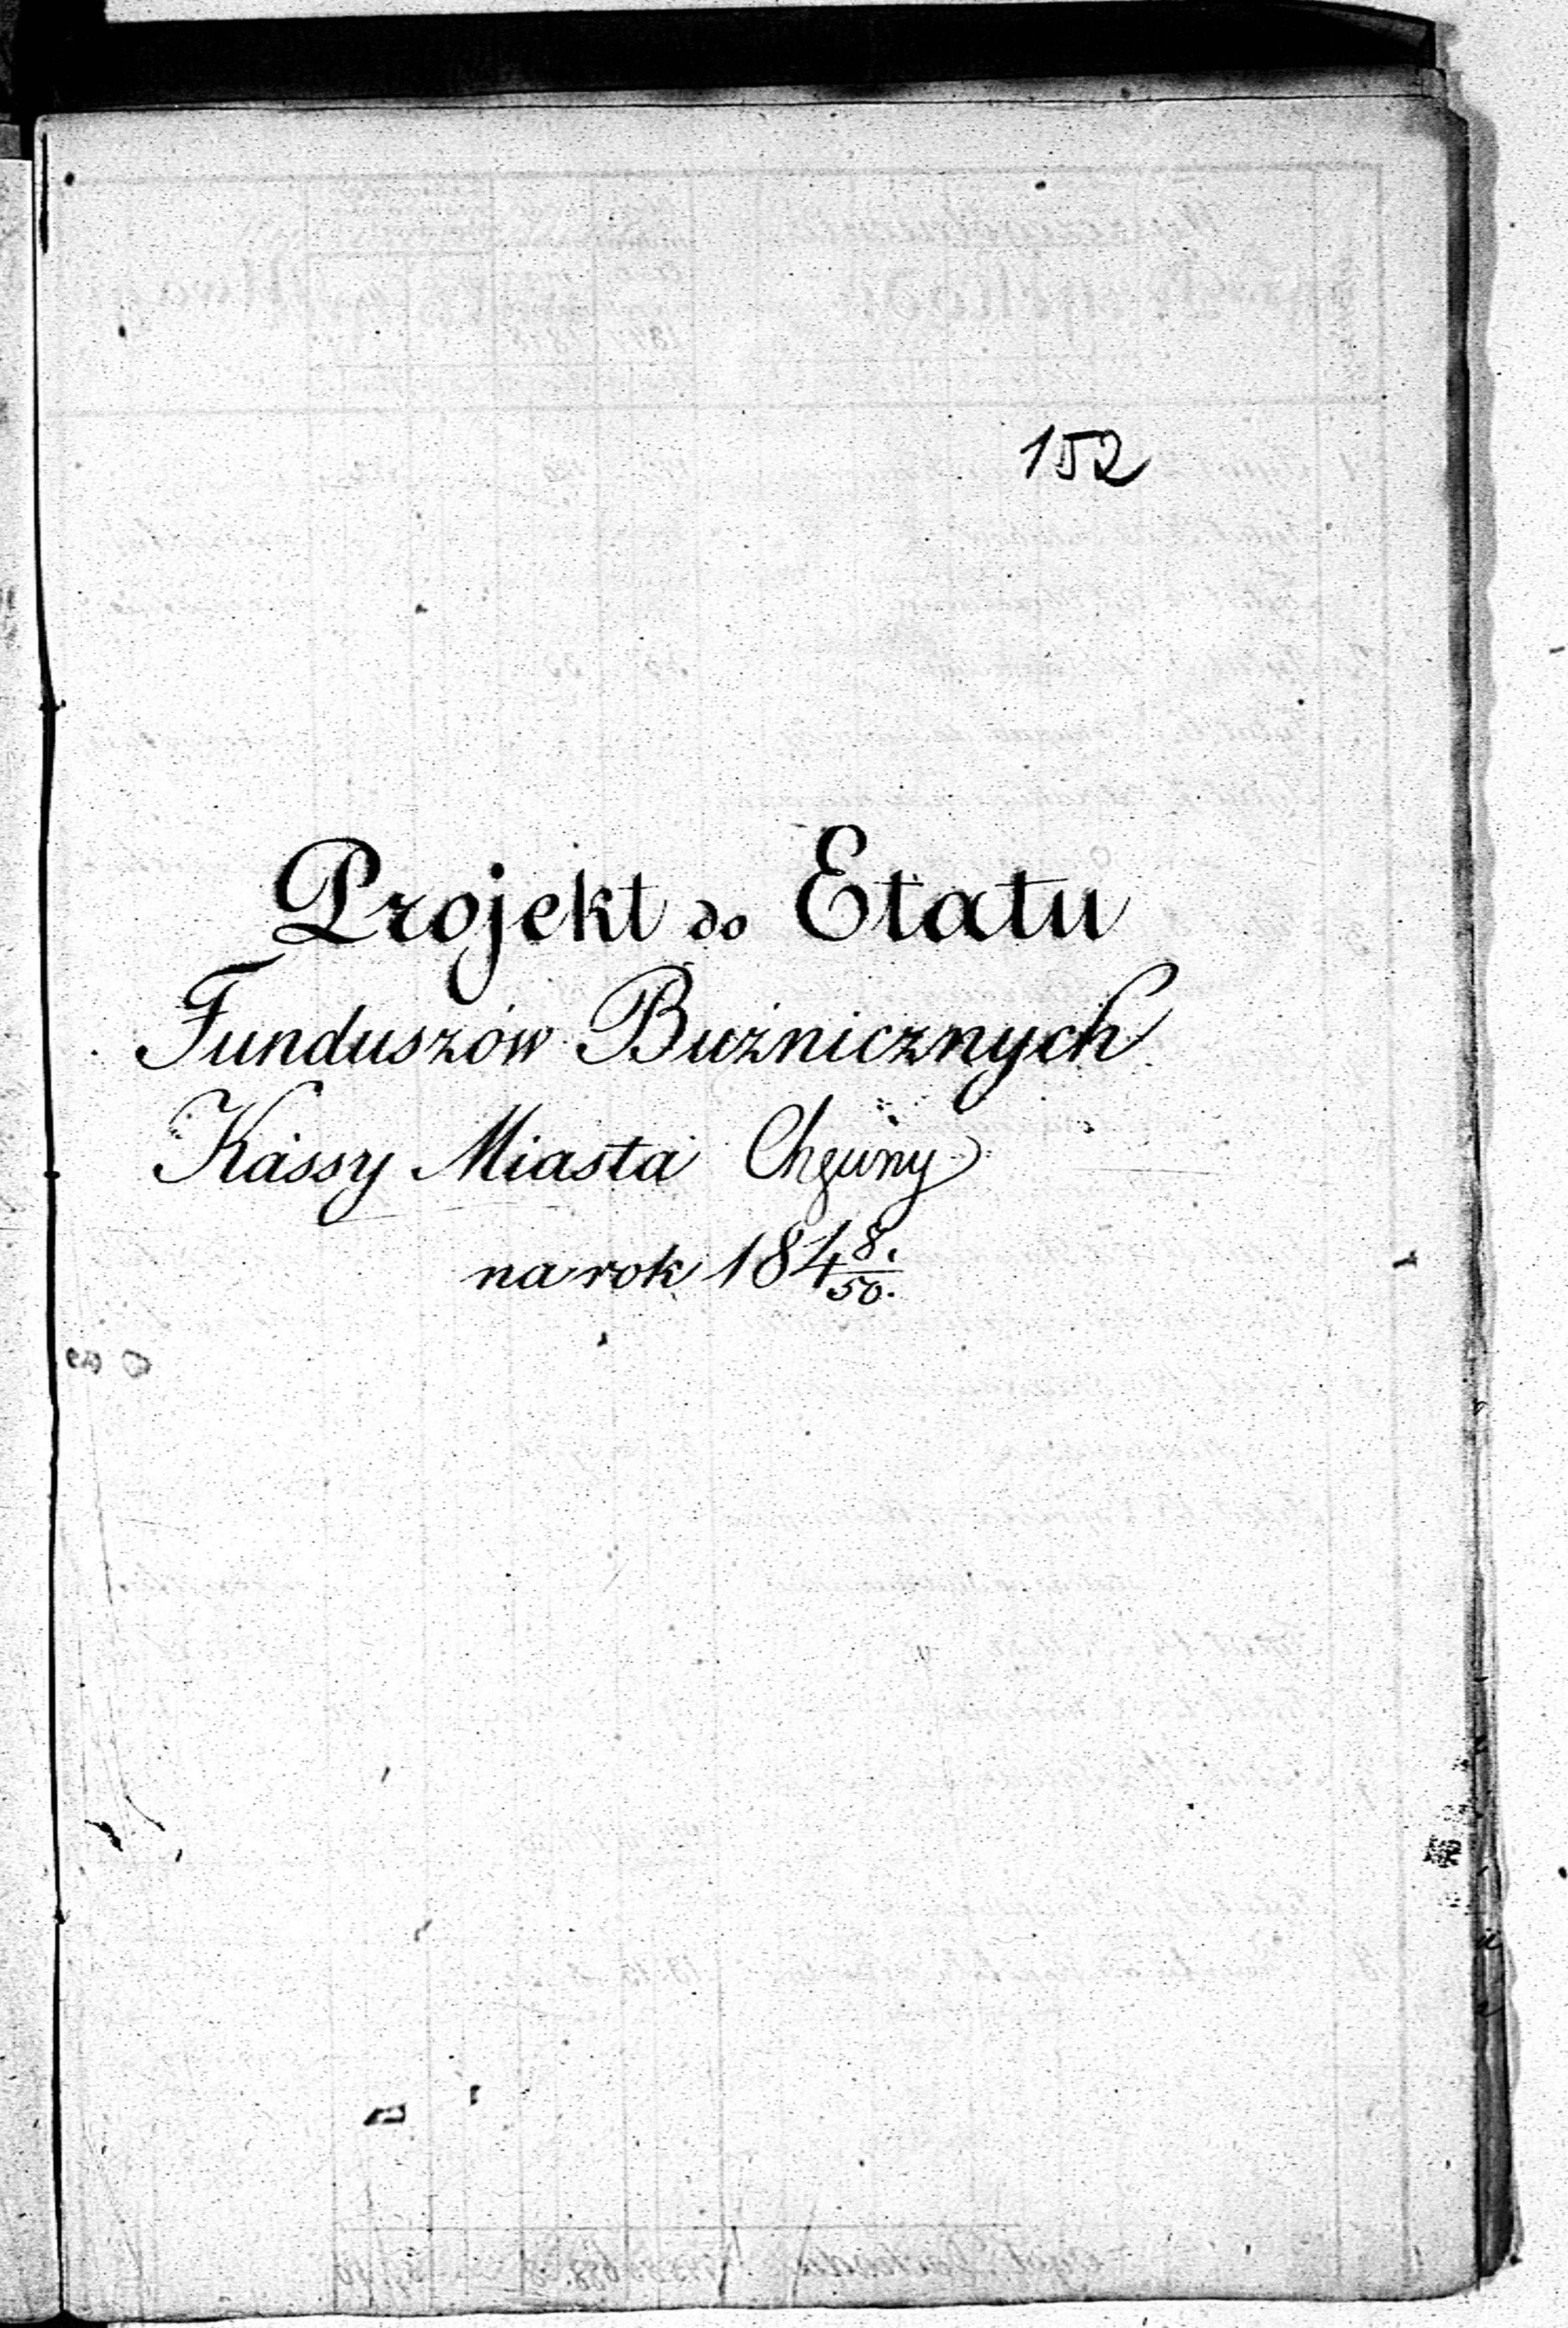 152
Projekt do Etatu
Funduszów Bużnicznych
Kassy Miasta Chęciny
na rok 184 8/50.